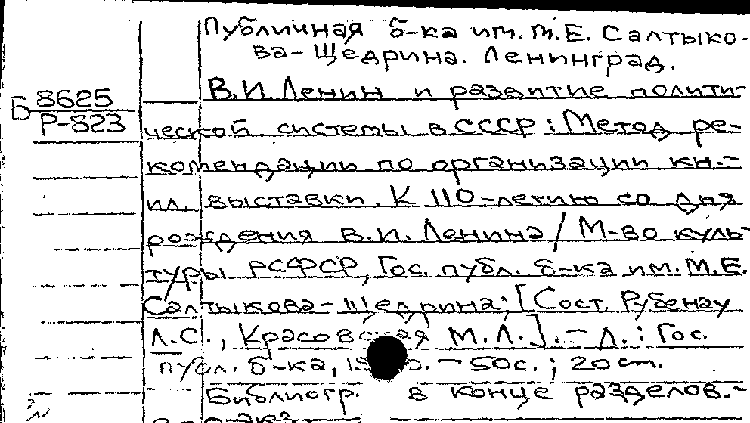 Публичная б-ка им. М.Е. Салтыко-
ва-Щедрина. Ленинград.
Б 8625
Р-823
В.И. Ленин и развитие полити-
ческой системы в СССР: Метод ре-
комендации по организации кн.-
ил. выставки. К 110-летию со дня
рождения В.И. Ленина / М-во куль-
туры РСФСР, Гос. публ. б-ка им. М.Е.
Салтыкова-Щедрина; [Сост. Рубенау
Л.С., М.Л.]. - Л.: Гос.
публ. б-ка, - 50с.; 20см.
Библиогр. в конце разделов.-